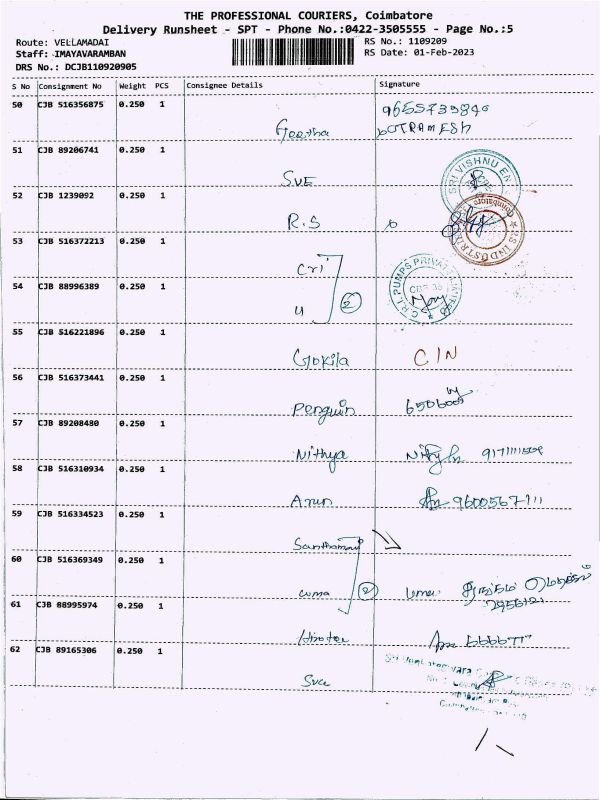 THE PROFESSIONAL COURIERS, Coimbatore
Delivery Runsheet - SPT - Phone No.:0422-3505555 - Page No.:5
Route: VELLAMADAI
Staff: IMAYAVARAMBAN
DRS No.: DCJB110920905
RS No.: 1109209
RS Date: 01-Feb-2023
S No Consignment No Weight PCS Consignee Details Signature
50 CJB 516356875 0.250 1
Geetha
51 CJB 89206741 0.250 1
SVE
SRI VISHNU EN
52 CJB 1239092 0.250 1
R.S
53 CJB 516372213 0.250 1
Cri
C.R.I. PUMPS PRIVATE LIMITED
54 CJB 88996389 0.250 1
u 2
55 CJB 516221896 0.250 1
Gokila CIN
56 CJB 516373441 0.250 1
Penguin
57 CJB 89208480 0.250 1
Nithya
58 CJB 516310934 0.250 1
Arun 9600567111
59 CJB 516334523 0.250 1
60 CJB 516369349 0.250 1
uma 2 uma
61 CJB 88995974 0.250 1
62 CJB 89165306 0.250 1
Sve